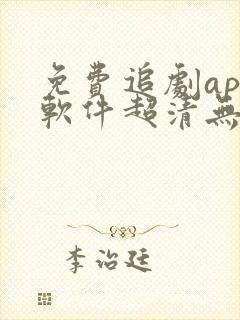 免費追劇ap
軟件超清無
李治廷